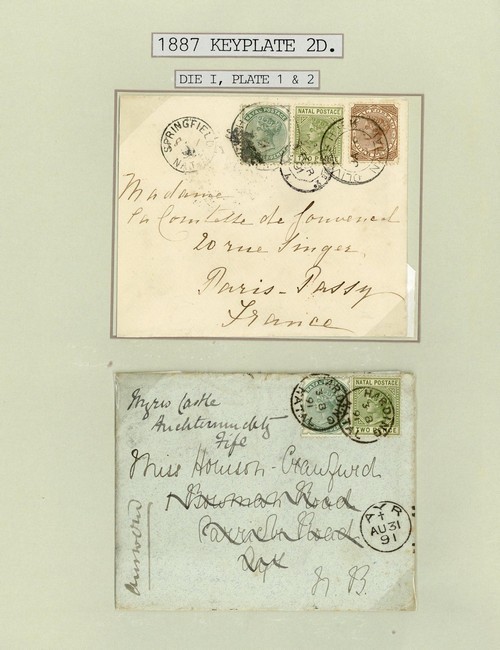 1887 KEYPLATE 2D.
DIE I, PLATE 1 & 2
SPRINGFIELD
NATAL POSTAGE
NATAL POSTAGE
Madame
La Comtesse de
20 rue Singer
Paris-Passy
France
HARDING
NATAL
HARDING
NATAL
NATAL POSTAGE
Myres Castle
Auchtermuchty
Fife
Miss Houison-Craufurd
Road
Road
Ayr
N. B.
Answered
AYR
AU 31
91